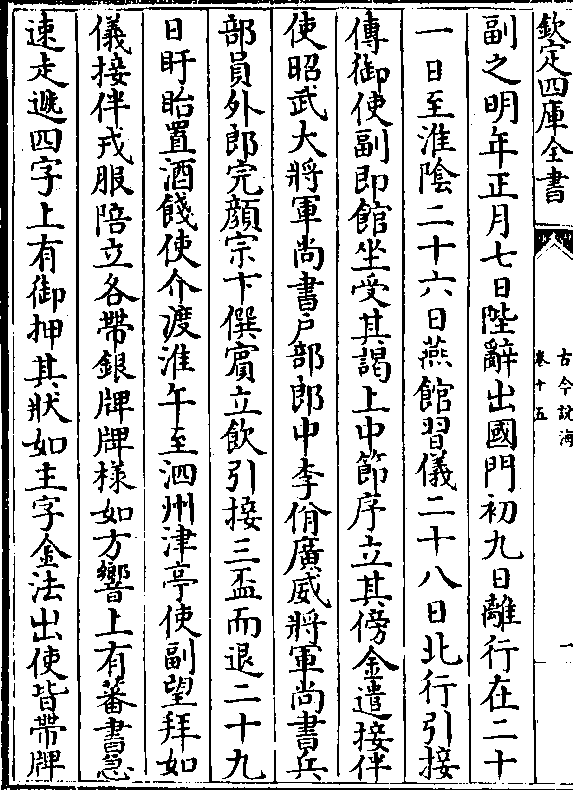 欽定四庫全書
古今說海
卷十五
一
副之明年正月七日陛辭出國門初九日離行在二十
一日至淮陰二十六日燕館習儀二十八日北行引接
傳御使副即館坐受其謁上中節序立其傍金遣接伴
使昭武大將軍尚書户部郎中李佾廣威將軍尚書兵
部員外郎完顔宗卞僎賓立飲引接三盃而退二十九
日盱眙置酒餞使介渡淮午至泗州津亭使副望拜如
儀接伴戎服陪立各帶銀牌牌樣如方響上有蕃書急
速走遞四字上有御押其狀如主字金法出使皆帶牌